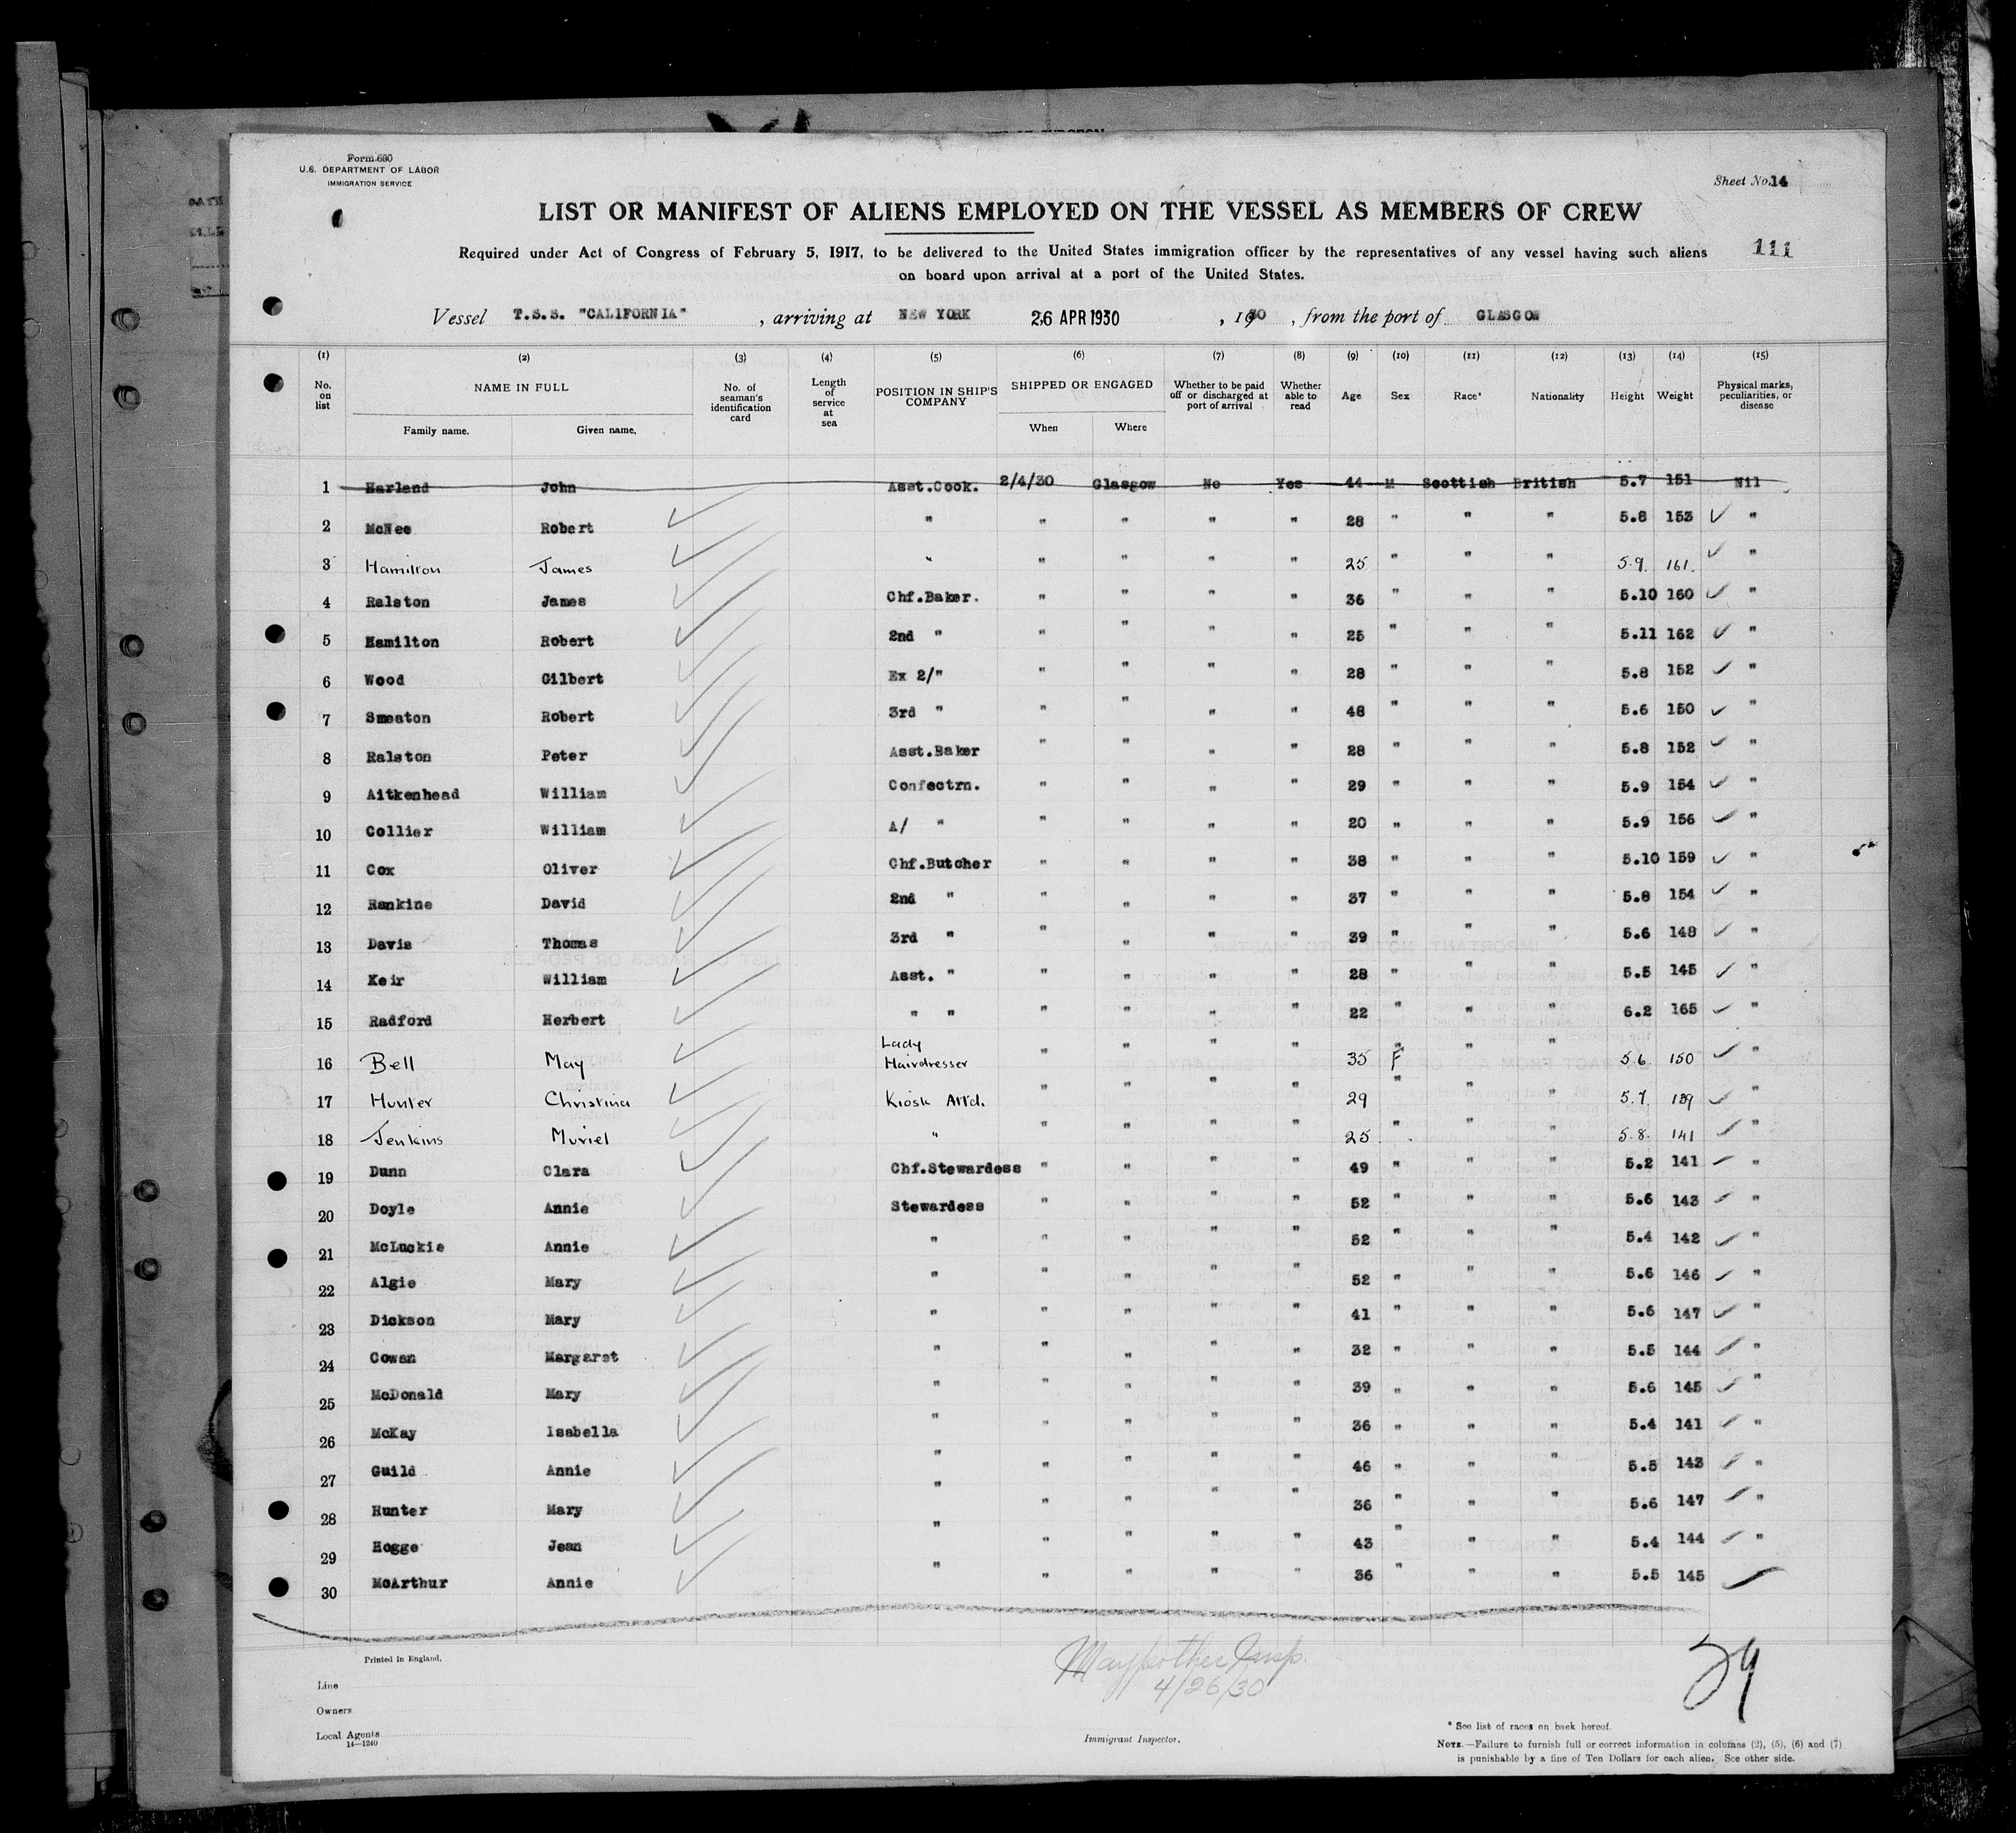 Form 680
U.S. DEPARTMENT OF LABOR
IMMIGRATION SERVICE
Sheet No. 14
LIST OR MANIFEST OF ALIENS EMPLOYED ON THE VESSEL AS MEMBERS OF CREW
Required under Act of Congress of February 5, 1917, to be delivered to the United States immigration officer by the representatives of any vessel having such aliens
on board upon arrival at a port of the United States.
111
Vessel T.S.S. "CALIFORNIA" , arriving at NEW YORK 26 APR 1930 , 1930 , from the port of GLASGOW
(1) (2) (3) (4) (5) (6) (7) (8) (9) (10) (11) (12) (13) (14) (15)
No. on list NAME IN FULL Family name. Given name. No. of seaman's identification card Length of service at sea POSITION IN SHIP'S COMPANY SHIPPED OR ENGAGED When Where Whether to be paid off or discharged at port of arrival Whether able to read Age Sex Race* Nationality Height Weight Physical marks, peculiarities, or disease
1 Harland John Asst.Cook. 2/4/30 Glasgow No Yes 44 M Scottish British 5.7 151 Nil
2 McNee Robert " " " " " 28 " " " 5.8 153 "
3 Hamilton James " " " " " 25 " " " 5.9. 161. "
4 Ralston James Chf.Baker. " " " " 36 " " " 5.10 160 "
5 Hamilton Robert 2nd " " " " " 25 " " " 5.11 162 "
6 Wood Gilbert Ex 2/" " " " " 28 " " " 5.8 152 "
7 Smeaton Robert 3rd " " " " " 48 " " " 5.6 150 "
8 Ralston Peter Asst.Baker " " " " 28 " " " 5.8 152 "
9 Aitkenhead William Confectrn. " " " " 29 " " " 5.9 154 "
10 Collier William A/ " " " " " 20 " " " 5.9 156 "
11 Cox Oliver Chf.Butcher " " " " 38 " " " 5.10 159 "
12 Rankine David 2nd " " " " " 37 " " " 5.8 154 "
13 Davis Thomas 3rd " " " " " 39 " " " 5.6 148 "
14 Keir William Asst. " " " " " 28 " " " 5.5 145 "
15 Radford Herbert " " " " " " 22 " " " 6.2 165 "
16 Bell May Lady Hairdresser " " " " 35 " F " " 5.6. 150 "
17 Hunter Christina Kiosk Attd. " " " " 29 " " " 5.7. 139 "
18 Jenkins Muriel " " " " " 25 " " " 5.8. 141 "
19 Dunn Clara Chf.Stewardess " " " " 49 " " " 5.2 141 "
20 Doyle Annie Stewardess " " " " 52 " " " 5.6 143 "
21 McLuckie Annie " " " " " 52 " " " 5.4 142 "
22 Algie Mary " " " " " 52 " " " 5.6 146 "
23 Dickson Mary " " " " " 41 " " " 5.6 147 "
24 Cowan Margaret " " " " " 32 " " " 5.5 144 "
25 McDonald Mary " " " " " 39 " " " 5.6 145 "
26 McKay Isabella " " " " " 36 " " " 5.4 141 "
27 Guild Annie " " " " " 46 " " " 5.5 143 "
28 Hunter Mary " " " " " 36 " " " 5.6 147 "
29 Hogge Jean " " " " " 43 " " " 5.4 144 "
30 McArthur Annie " " " " " 36 " " " 5.5 145
Printed in England.
4/26/30
29
Line
Owners
Local Agents
14—1240
Immigrant Inspector.
* See list of races on back hereof.
NOTE.—Failure to furnish full or correct information in columns (2), (5), (6) and (7)
is punishable by a fine of Ten Dollars for each alien. See other side.